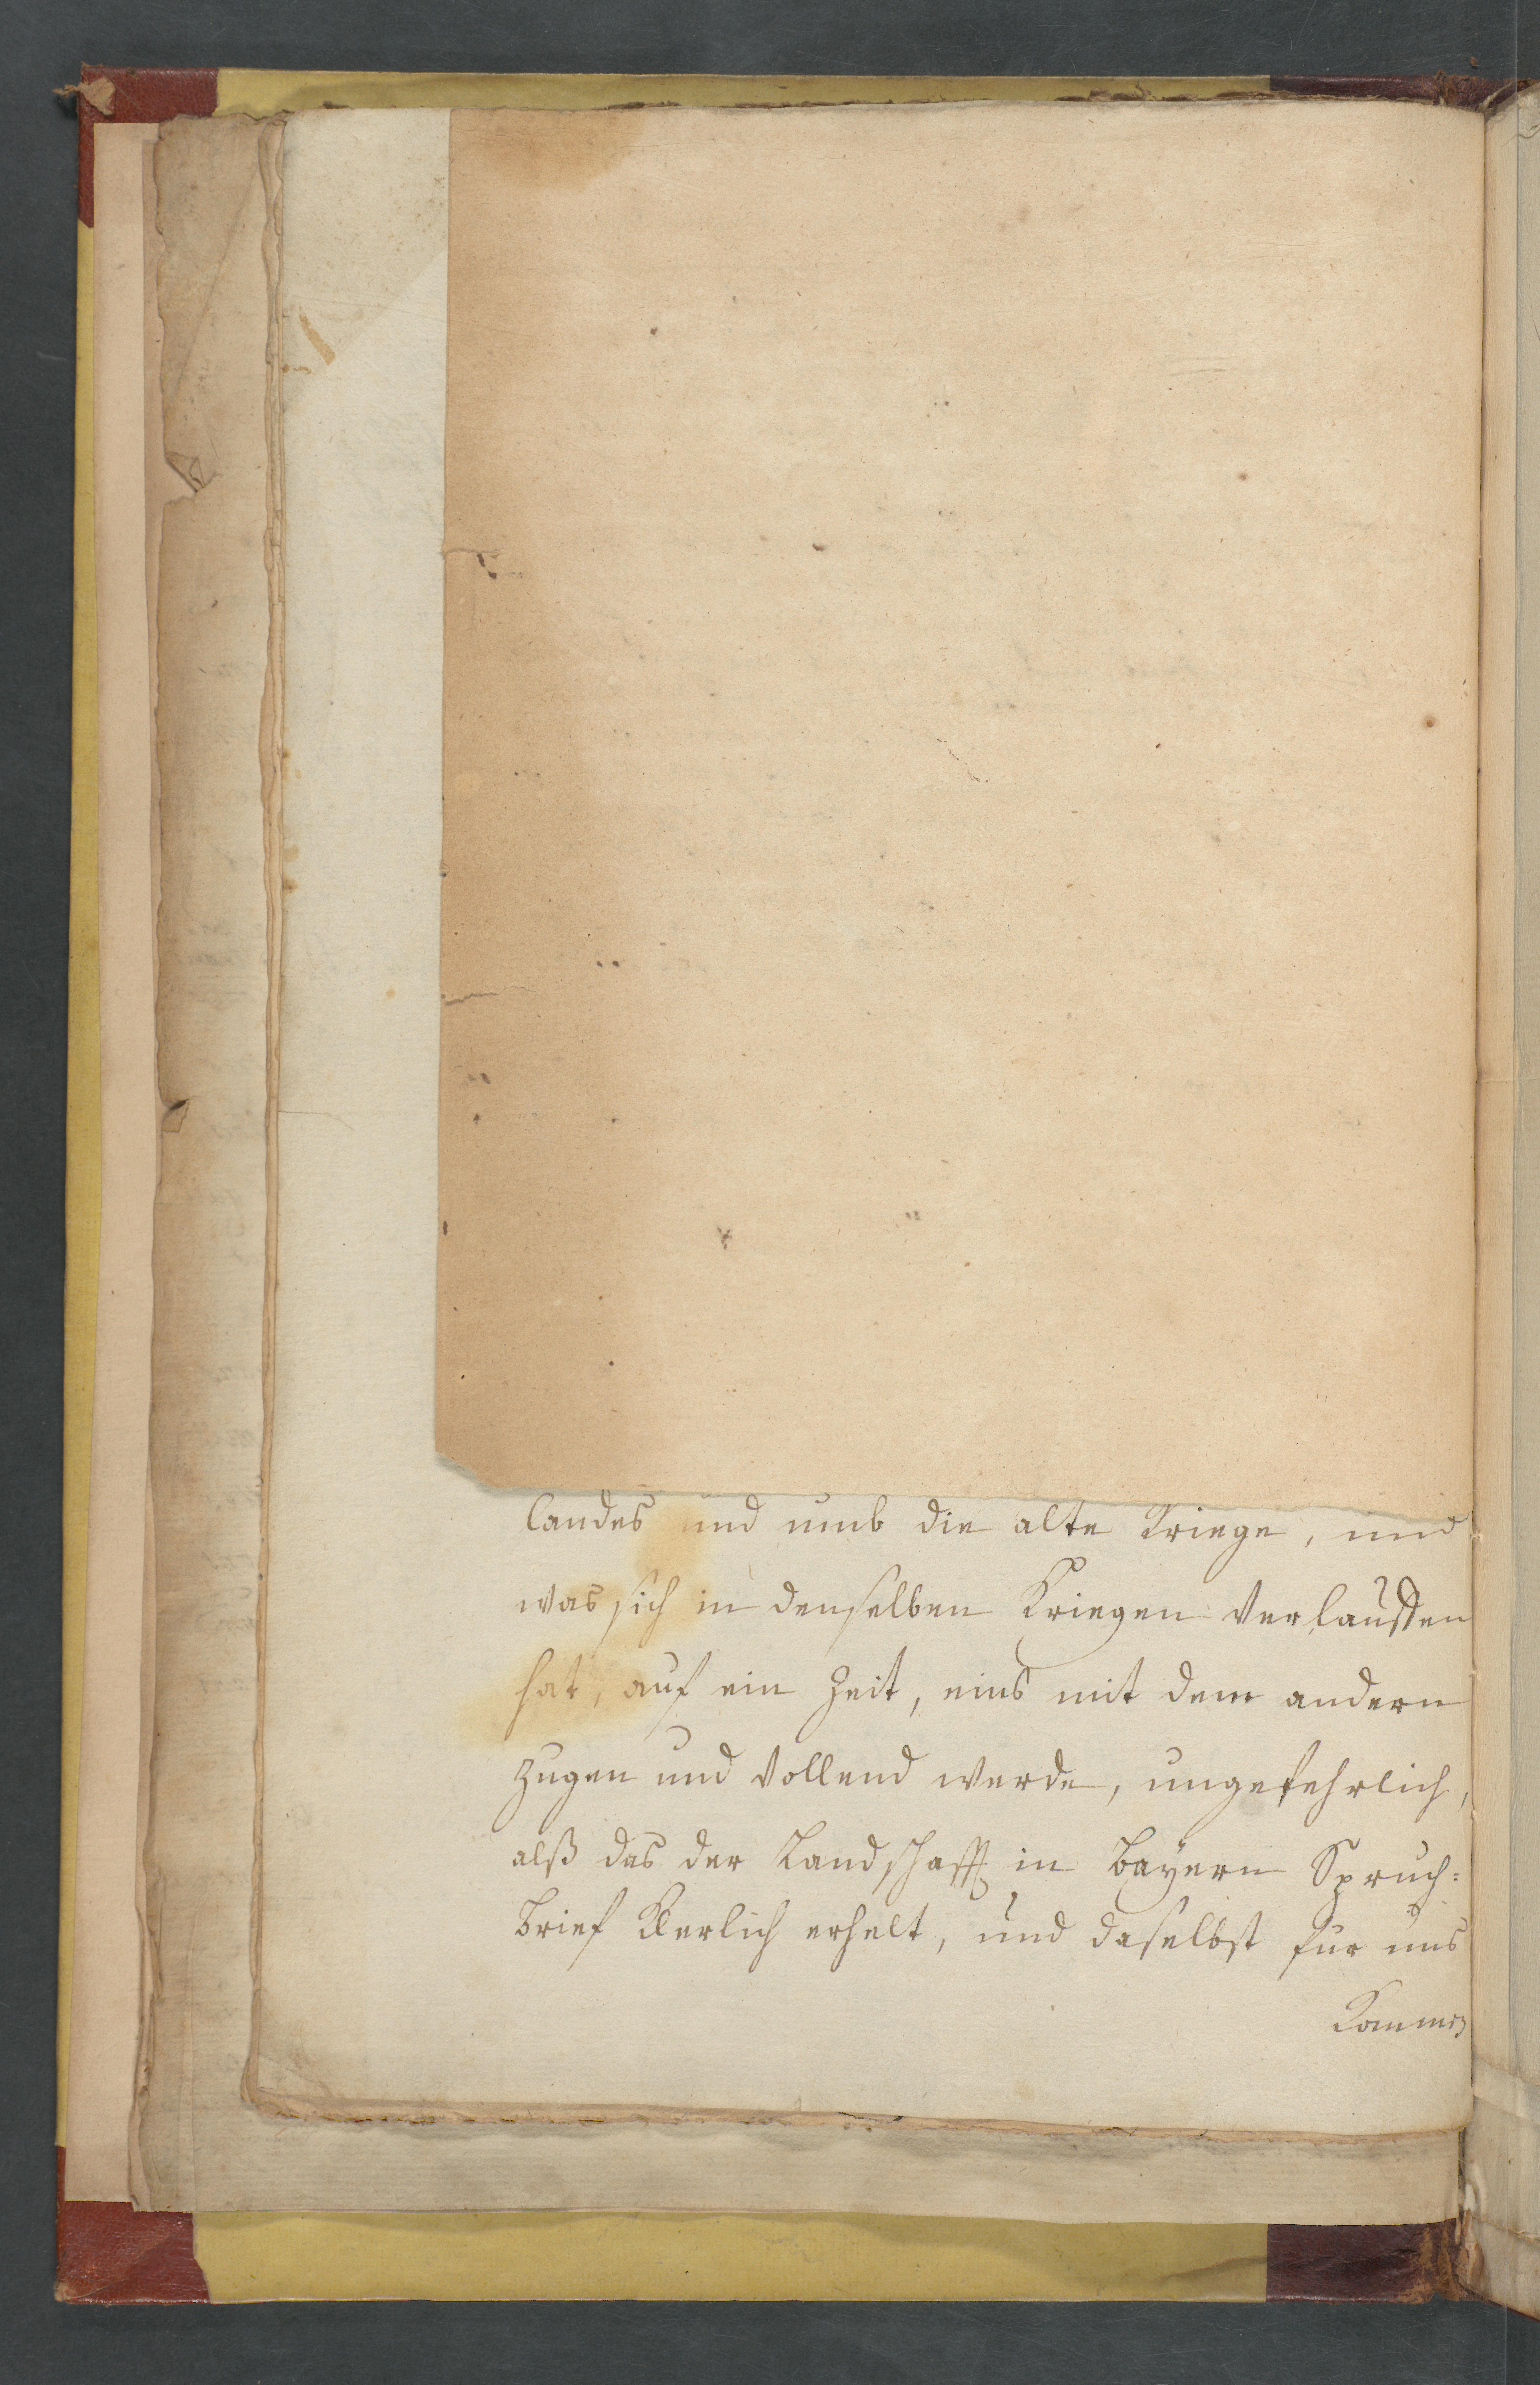 landes und umb die alte Kriege, und
was sich in denselben Kriegen verlauffen
hat, auf ein Zeit, eins mit dem andern
zugen und vollend werde, ungefehrlich,
alß das der Landschafft in Bayern Spruch=
brief Klerlich erhelt, und daselbst für uns
Kommen